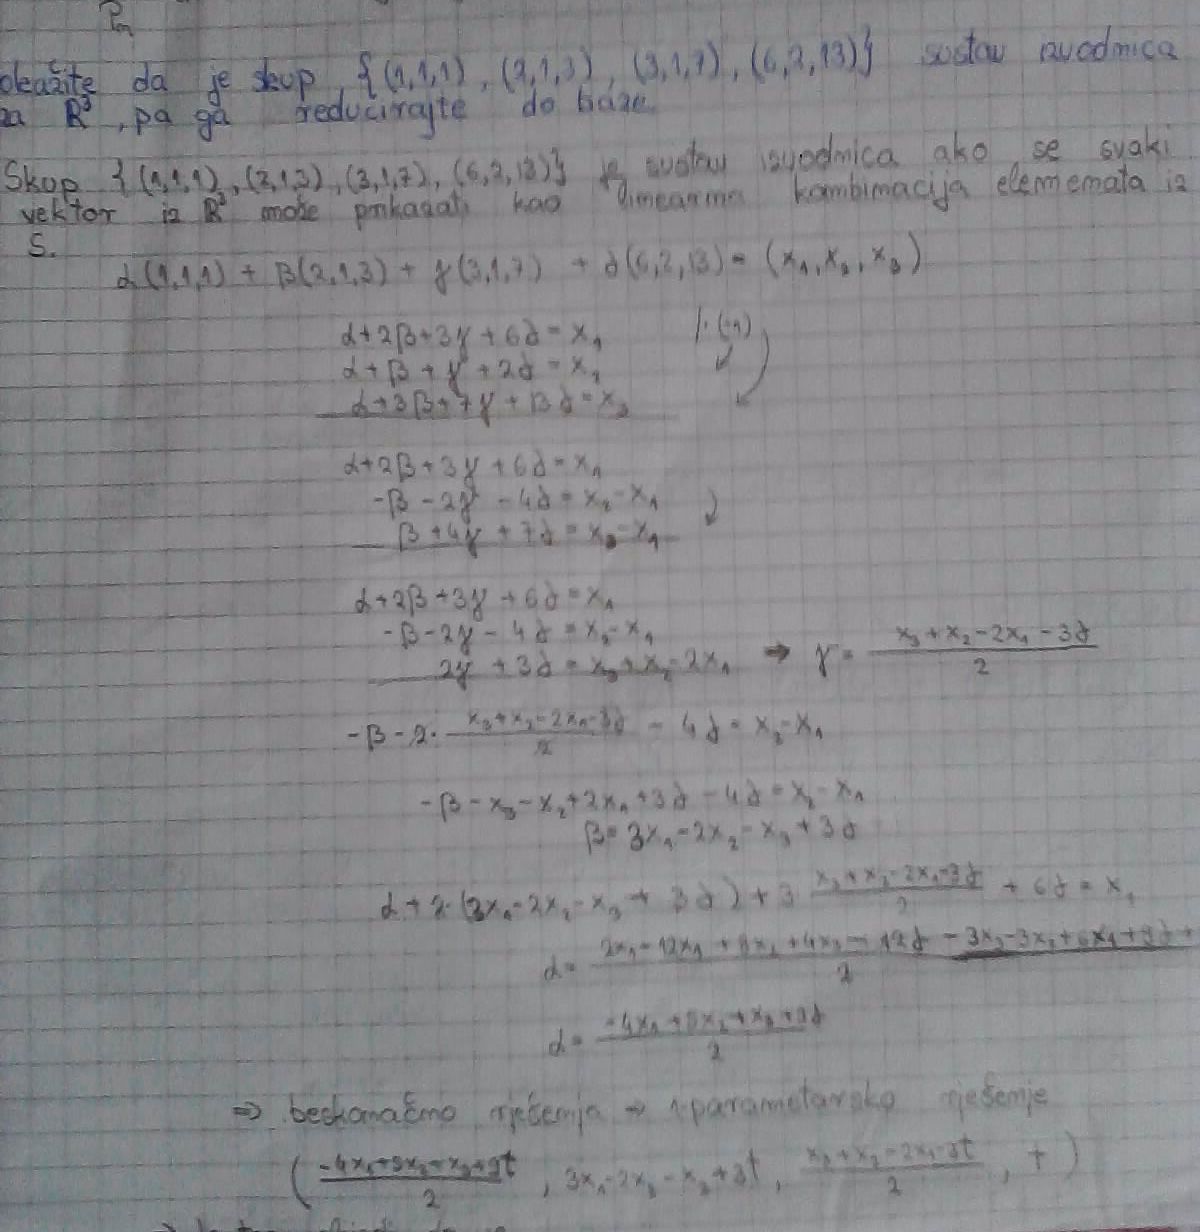 Pm
okažite da je skup {(1,1,1), (2,1,3), (3,1,7), (6,2,13)} sustav izvodnica
za R³, pa ga reducirajte do baze.
Skup {(1,1,1), (2,1,3), (3,1,7), (6,2,13)} je sustav izvodnica ako se svaki
vektor iz R³ može prikazati kao linearna kombinacija elemenata iz
S.
α(1,1,1) + β(2,1,3) + γ(3,1,7) + δ(6,2,13) = (x₁, x₂, x₃)
α+2β+3γ+6δ=x₁ /·(-1)
α+β+γ+2δ=x₁
α+3β+7γ+13δ=x₃
α+2β+3γ+6δ=x₁
-β-2γ-4δ=x₂-x₁
β+4γ+7δ=x₃-x₁
α+2β+3γ+6δ=x₁
-β-2γ-4δ=x₂-x₁
2γ+3δ=x₃+x₂-2x₁ ⇒ γ = (x₃+x₂-2x₁-3δ)/2
-β-2·(x₃+x₂-2x₁-3δ)/2 - 4δ = x₂-x₁
-β-x₃-x₂+2x₁+3δ-4δ=x₂-x₁
β=3x₁-2x₂-x₃+3δ
α+2·(3x₁-2x₂-x₃+3δ)+3 (x₃+x₂-2x₁-3δ)/2 + 6δ = x₁
α = (2x₁-12x₁+8x₂+4x₃-12δ-3x₃-3x₂+6x₁+9δ+)/2
α = (-4x₁+5x₂+x₃+9δ)/2
⇒ beskonačno rješenja ⇒ 1-parametarsko rješenje
((-4x₁+5x₂+x₃+9t)/2, 3x₁-2x₂-x₃+3t, (x₃+x₂-2x₁-3t)/2, t)